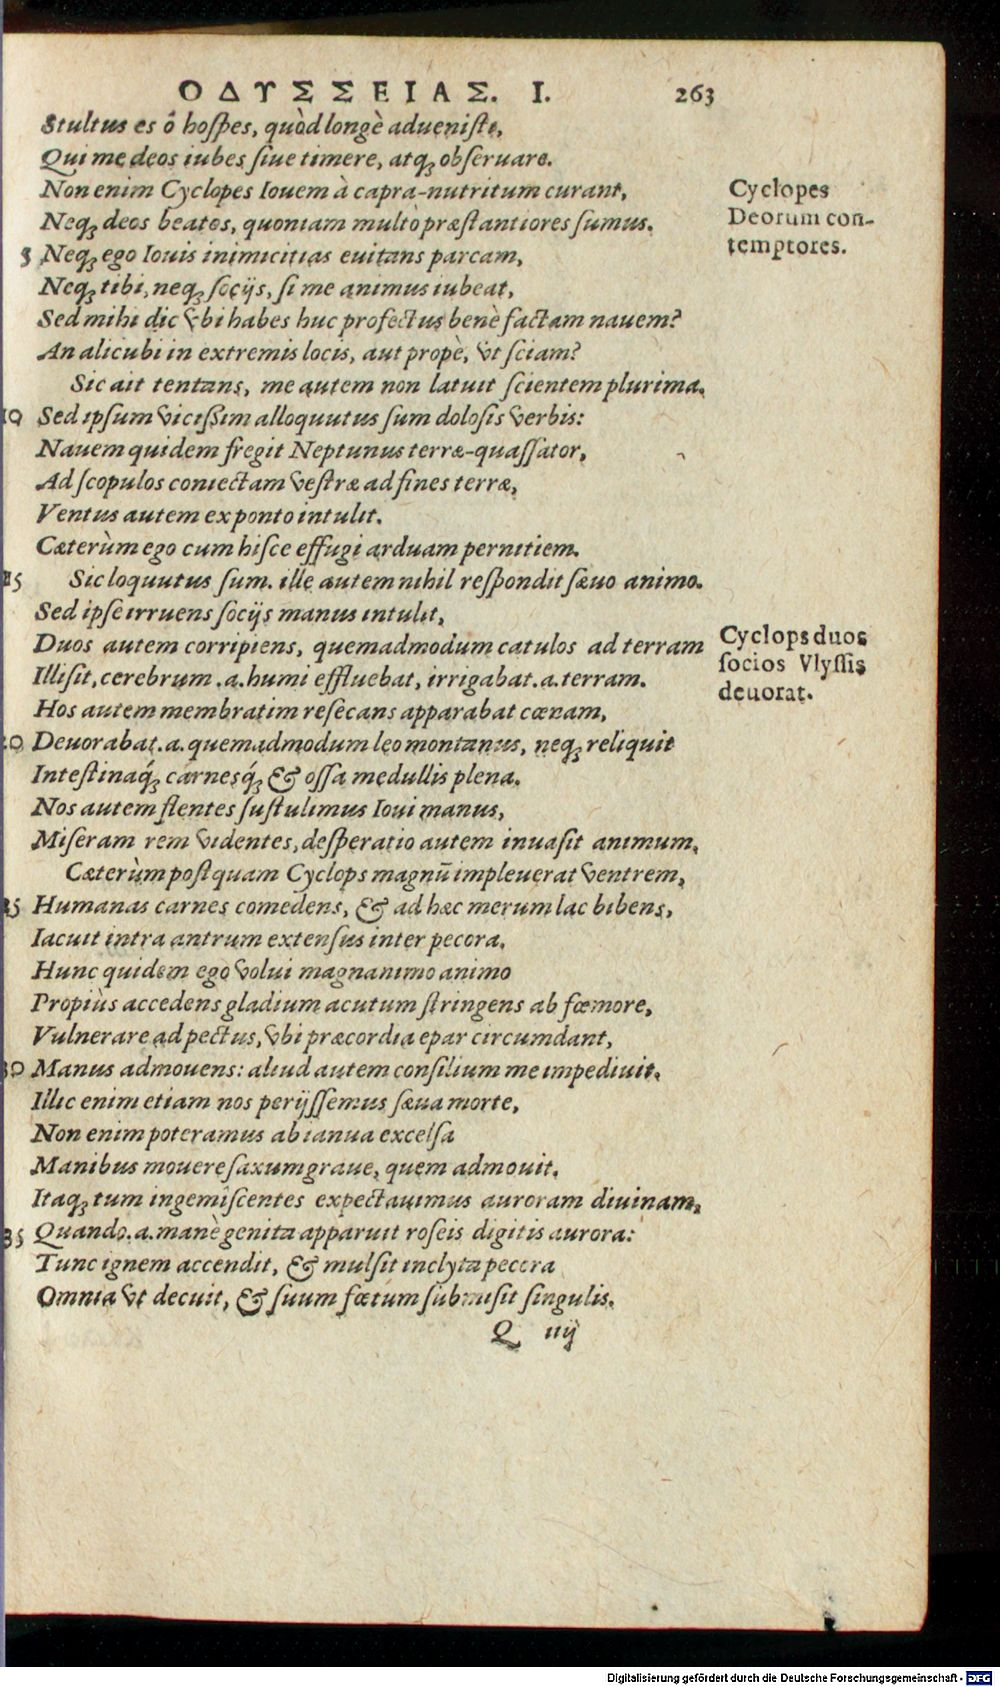 ΟΔΥΣΣΕΙΑΣ. I. 263
Stultus es ô hospes, quòd longè adueniste,
Qui me deos iubes siue timere, atq; obseruare.
Non enim Cyclopes Iouem à capra-nutritum curant,
Cyclopes
Neq; deos beatos, quoniam multò præstantiores sumus.
Deorum con-
5 Neq; ego Iouis inimicitias euitans parcam,
temptores.
Neq; tibi, neq; socijs, si me animus iubeat,
Sed mihi dic vbi habes huc profectus benè factam nauem?
An alicubi in extremis locis, aut propè, vt sciam?
Sic ait tentans, me autem non latuit scientem plurima.
10 Sed ipsum vicissim alloquutus sum dolosis verbis:
Nauem quidem fregit Neptunus terræ-quassator,
Ad scopulos coniectam vestræ ad fines terræ,
Ventus autem ex ponto intulit.
Cæterùm ego cum hisce effugi arduam pernitiem.
15 Sic loquutus sum. ille autem nihil respondit sæuo animo.
Sed ipse irruens socijs manus intulit,
Duos autem corripiens, quemadmodum catulos ad terram
Cyclops duos
Illisit, cerebrum .a. humi effluebat, irrigabat .a. terram.
socios Vlyssis
Hos autem membratim resecans apparabat cœnam,
deuorat.
20 Deuorabat .a. quemadmodum leo montanus, neq; reliquit
Intestinaq́; carnesq́; & ossa medullis plena.
Nos autem flentes sustulimus Ioui manus,
Miseram rem videntes, desperatio autem inuasit animum.
Cæterùm postquam Cyclops magnū impleuerat ventrem,
25 Humanas carnes comedens, & ad hæc merum lac bibens,
Iacuit intra antrum extensus inter pecora.
Hunc quidem ego volui magnanimo animo
Propiùs accedens gladium acutum stringens ab fœmore,
Vulnerare ad pectus, vbi præcordia epar circumdant,
30 Manus admouens: aliud autem consilium me impediuit.
Illic enim etiam nos perijssemus sæua morte,
Non enim poteramus ab ianua excelsa
Manibus mouere saxum graue, quem admouit.
Itaq; tum ingemiscentes expectauimus auroram diuinam.
35 Quando .a. manè genita apparuit roseis digitis aurora:
Tunc ignem accendit, & mulsit inclyta pecora
Omnia vt decuit, & suum fœtum submisit singulis.
Q iiij
Digitalisierung gefördert durch die Deutsche Forschungsgemeinschaft - DFG